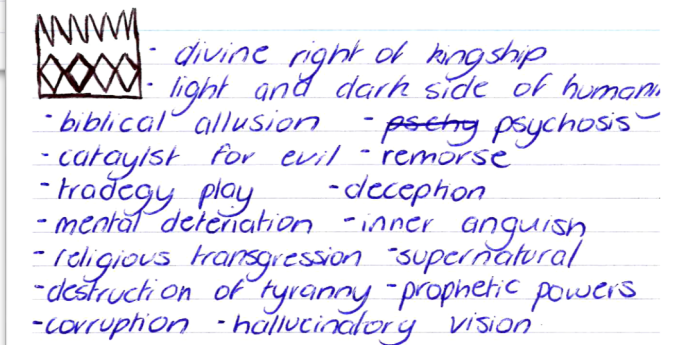 - divine right of kingship
- light and dark side of humani
- biblical allusion - pschy psychosis
- cataylst for evil - remorse
- tradegy play - deception
- mental deteriation - inner anguish
- religious transgression - supernatural
- destruction of tyranny - prophetic powers
- corruption - hallucinatory vision